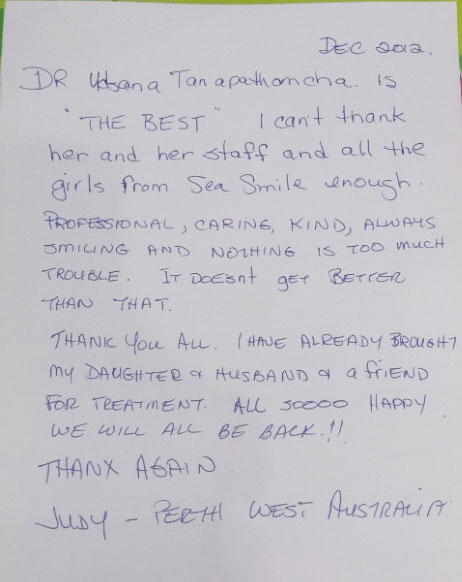 DEC 2012.
DR Utsana Tanapathomcha is
"THE BEST" I can't thank
her and her staff and all the
girls from Sea Smile enough.
PROFESSIONAL, CARING, KIND, ALWAYS
SMILING AND NOTHING IS TOO MUCH
TROUBLE. IT DOESNT GET BETTER
THAN THAT.
THANK YOU ALL. I HAVE ALREADY BROUGHT
MY DAUGHTER & HUSBAND & a friEND
FOR TREATMENT. ALL SOOOO HAPPY
WE WILL ALL BE BACK.!!
THANX AGAIN.
JUDY - PERTH WEST AUSTRALIA